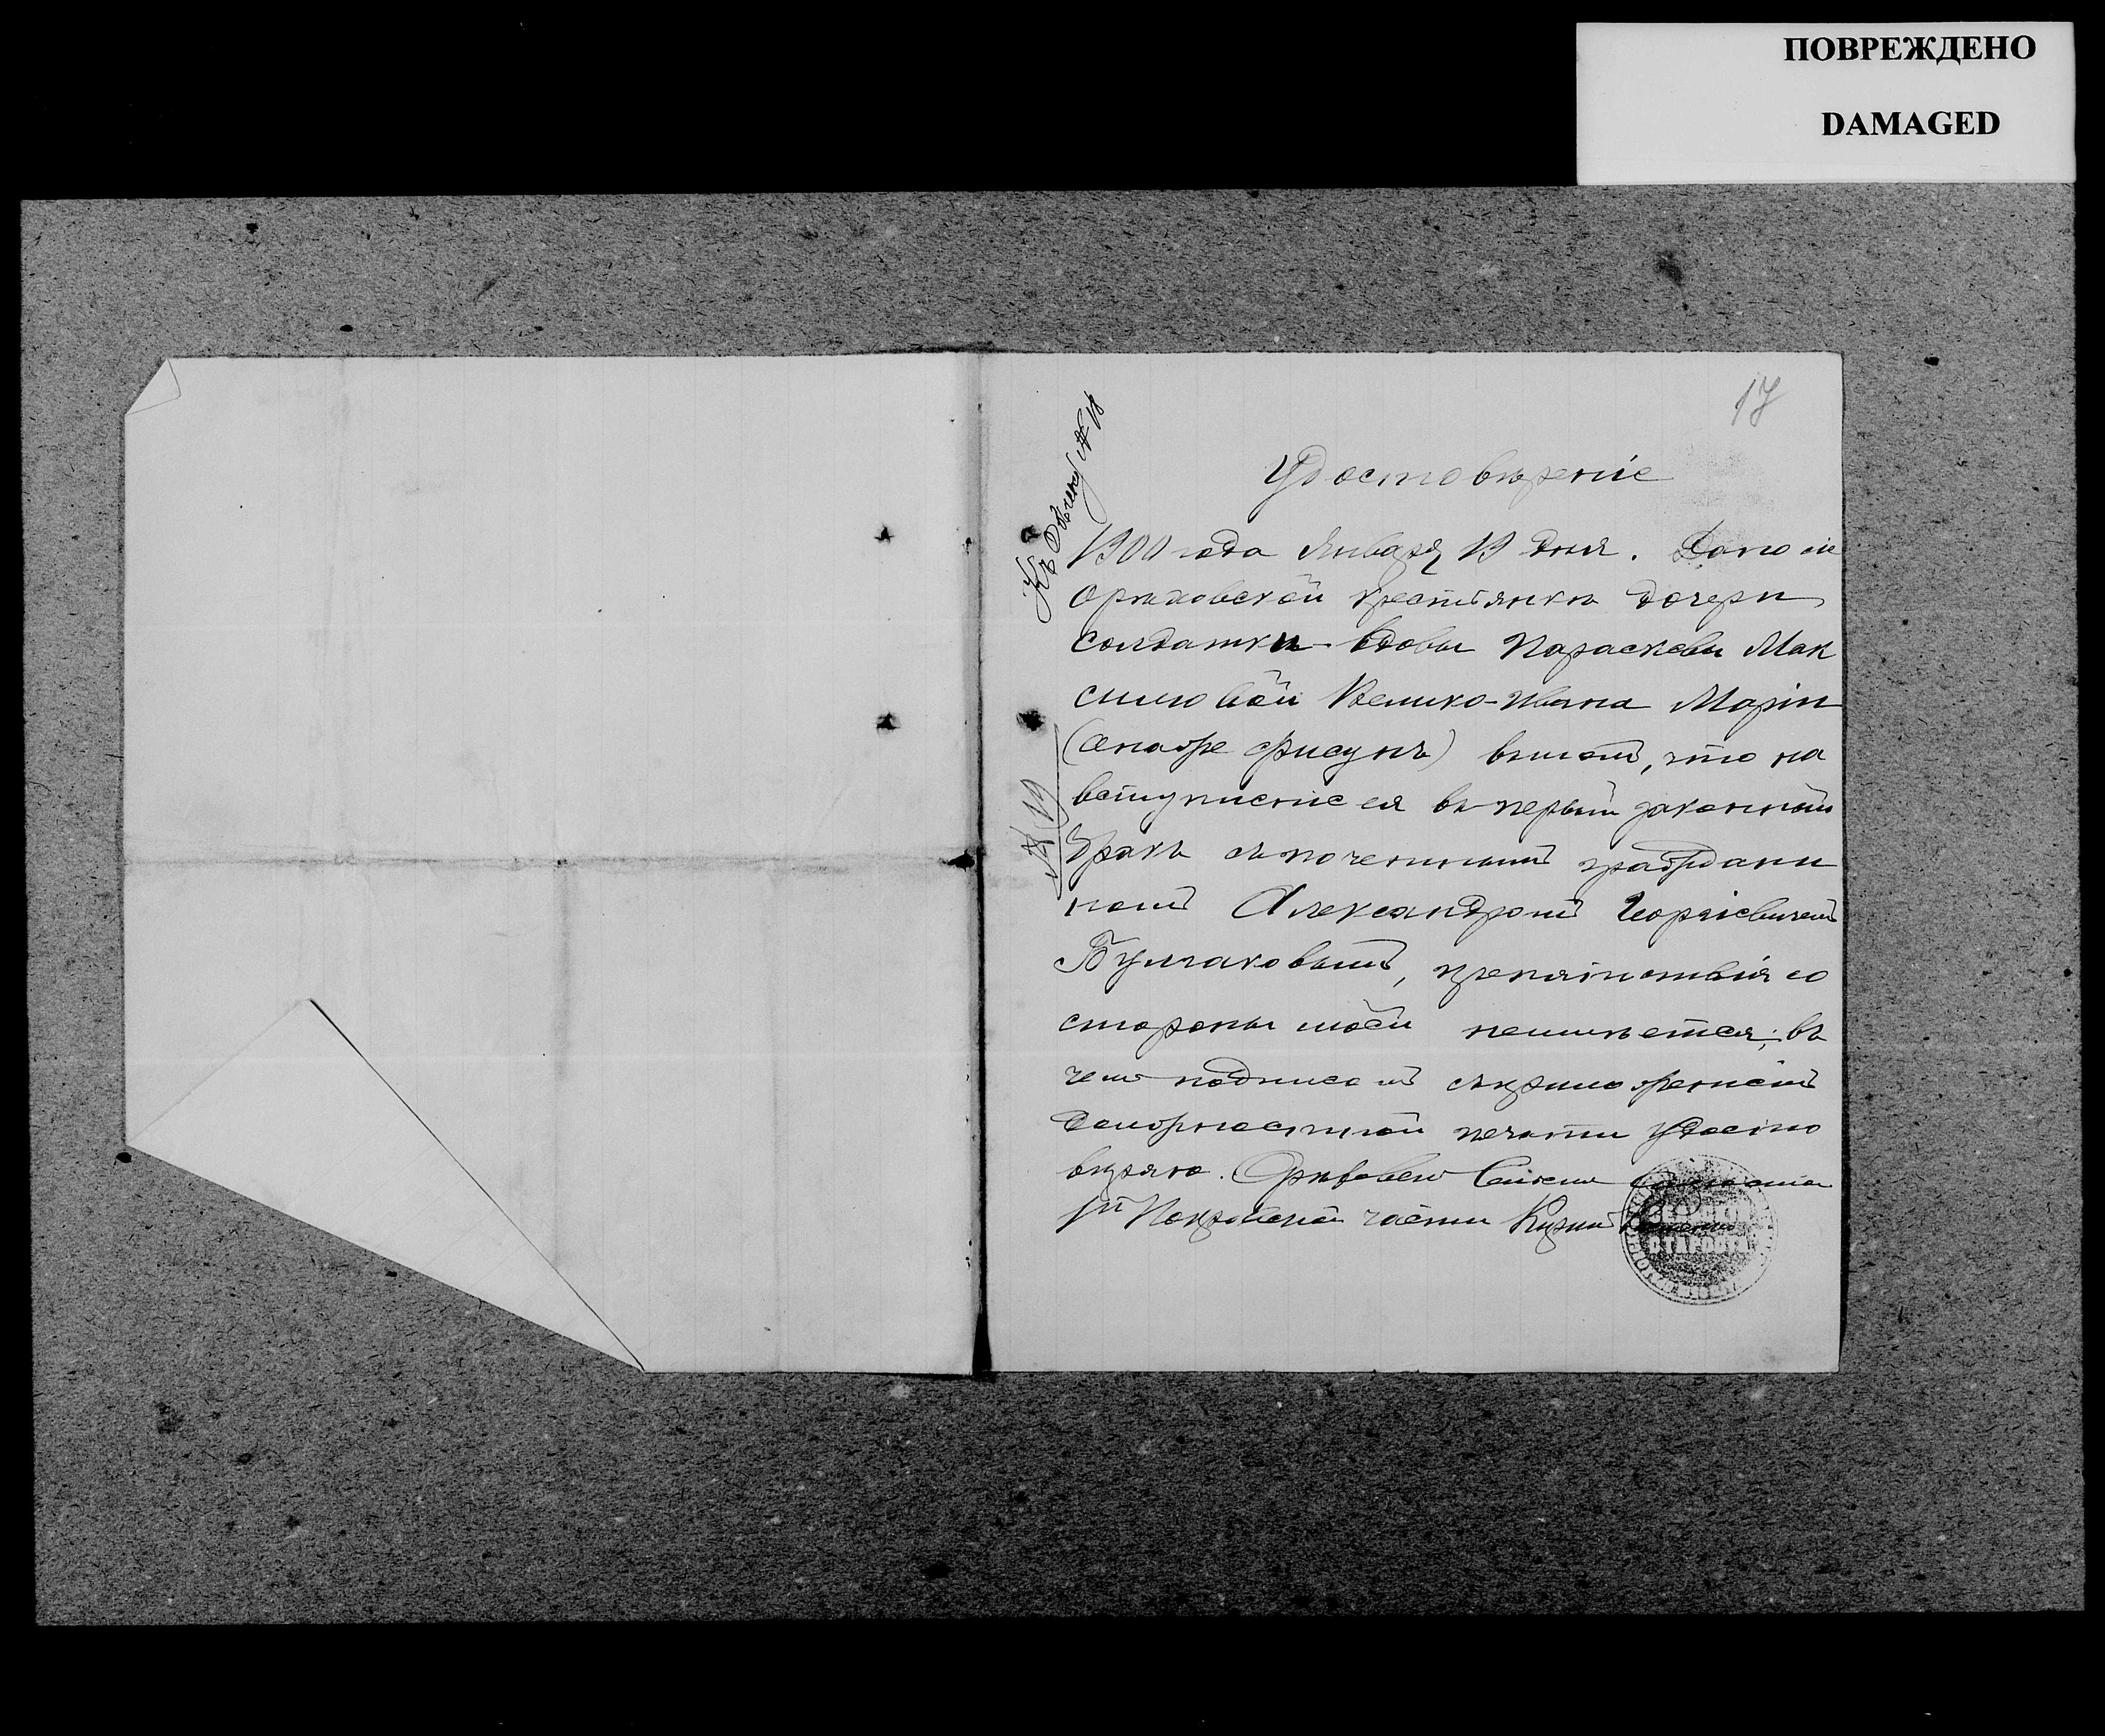 ПОВРЕЖДЕНО
DAMAGED
17
Къ Обыску № 18
№ 19
Удостовѣреніе
1900 года Января 19 дня. Дано сіе
Орѣховской крестьянкѣ дочери
солдатки-вдовы Параскевы Мак
симовой Велико-Ивана Маріи
въ томъ, что на
вступленіе ея въ первый законный
бракъ съ почетнымъ граждани
номъ Александромъ Георгіевичемъ
Булгаковымъ, препятствія со
стороны моей неимѣется; въ
чемъ подписомъ съ приложеніемъ
должностной печати удосто
вѣряю. Орѣховск Сельскій
1й Покровской части Кузьма
СЕЛЬСКІЙ
СТАРОСТА